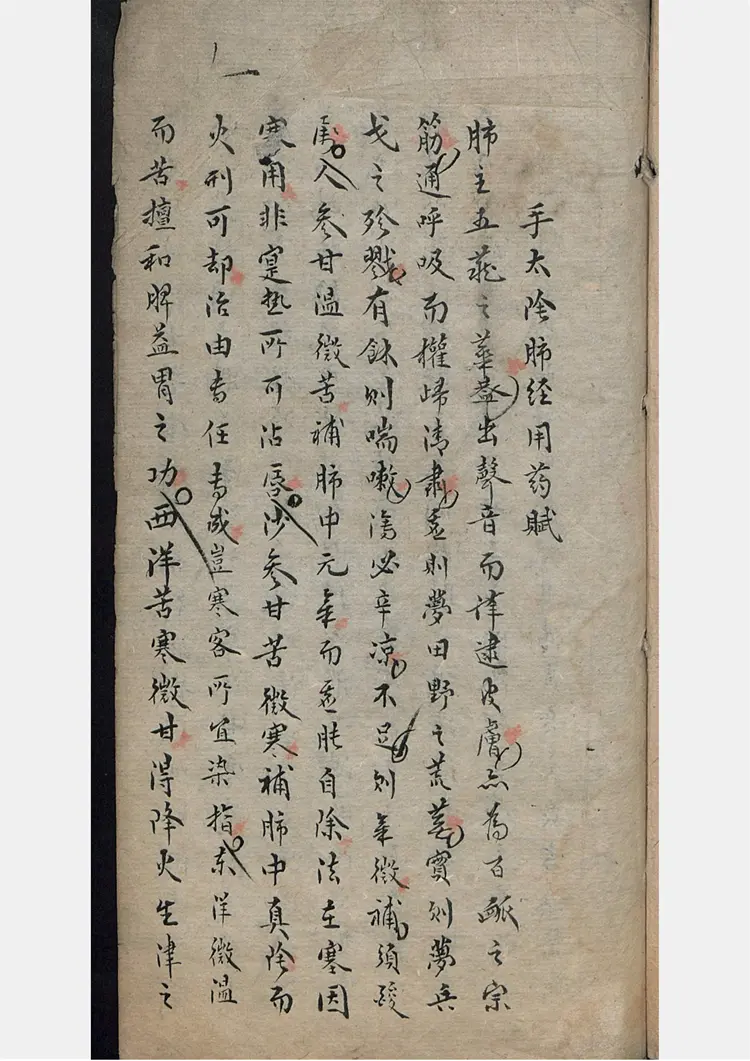 手太陰肺経用药賦
肺主五蔵之華蓋出聲音而澤逮皮膚亦為百脈之宗
筋通呼吸而權歸清肅虛則夢田野之荒蕪實則夢兵
戈之殄戮有餘則喘嗽瀉必辛凉不足則氣微補須酸
入參甘温微苦補肺中元氣而虛自除法在塞因
寒用非寔热所可沾唇沙參甘苦微寒補肺中真陰而
火刑可却治由耑任耑成豈寒客所宜染指东洋微温
而苦擅和脾益胃之功西洋苦寒微甘得降火生津之